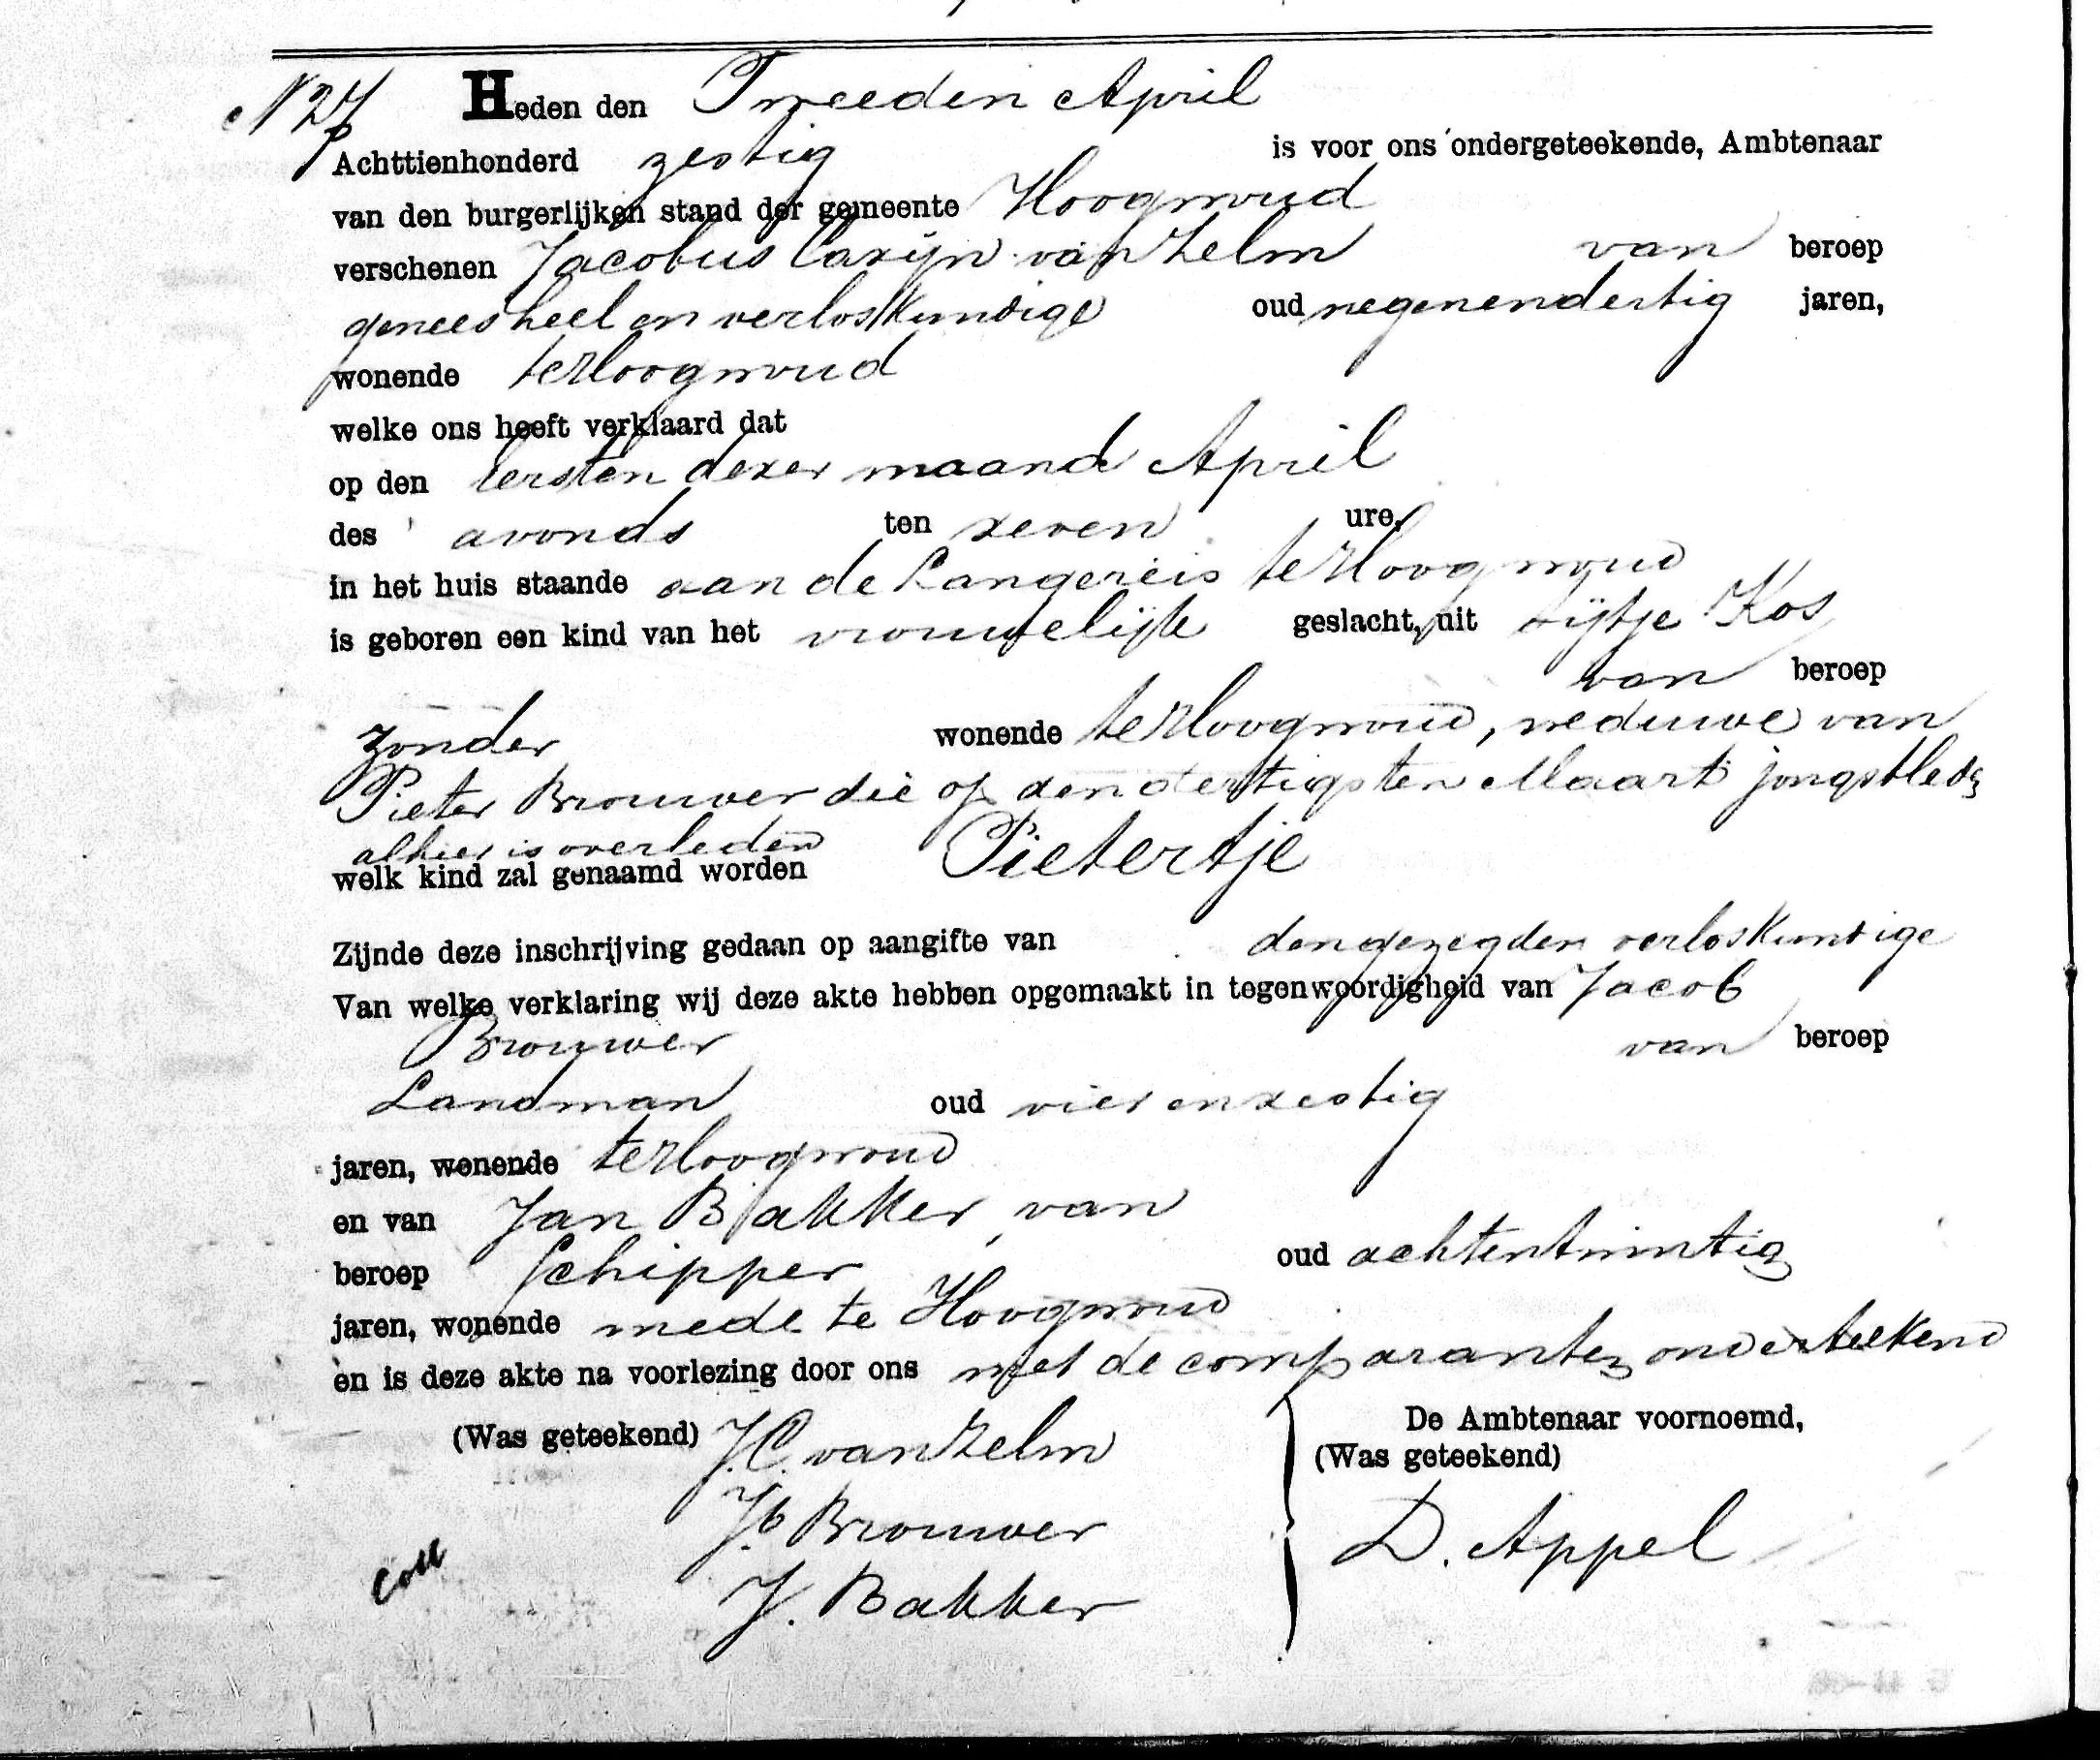 N 27 Heden den Tweeden April
Achttienhonderd zestig is voor ons ondergeteekende, Ambtenaar
van den burgerlijken stand der gemeente Hoogwoud
verschenen Jacobus Carijn van Zelm van beroep
genees heel en verloskundige oud negenendertig jaren,
wonende te Hoogwoud
welke ons heeft verklaard dat
op den Eersten dezer maand April
des avonds ten zeven ure,
in het huis staande aan de Langereis te Hoogwoud
is geboren een kind van het vrouwelijk geslacht, uit Sijtje Kos
van beroep
zonder wonende te Hoogwoud, weduwe van
Pieter Brouwer die op den dertigsten Maart jongstleden
alhier is overleden
welk kind zal genaamd worden Pietertje
Zijnde deze inschrijving gedaan op aangifte van den gezegden verloskundige
Van welke verklaring wij deze akte hebben opgemaakt in tegenwoordigheid van Jacob
Brouwer van beroep
Landman oud vier en zestig
jaren, wonende te Hoogwoud
en van Jan Bakker, van
beroep Schipper oud achtentwintig
jaren, wonende mede te Hoogwoud
en is deze akte na voorlezing door ons met de comparanten onderteekend
(Was geteekend) J. C. van Zelm
Jb Brouwer
J. Bakker
De Ambtenaar voornoemd,
(Was geteekend)
D. Appel
Coll